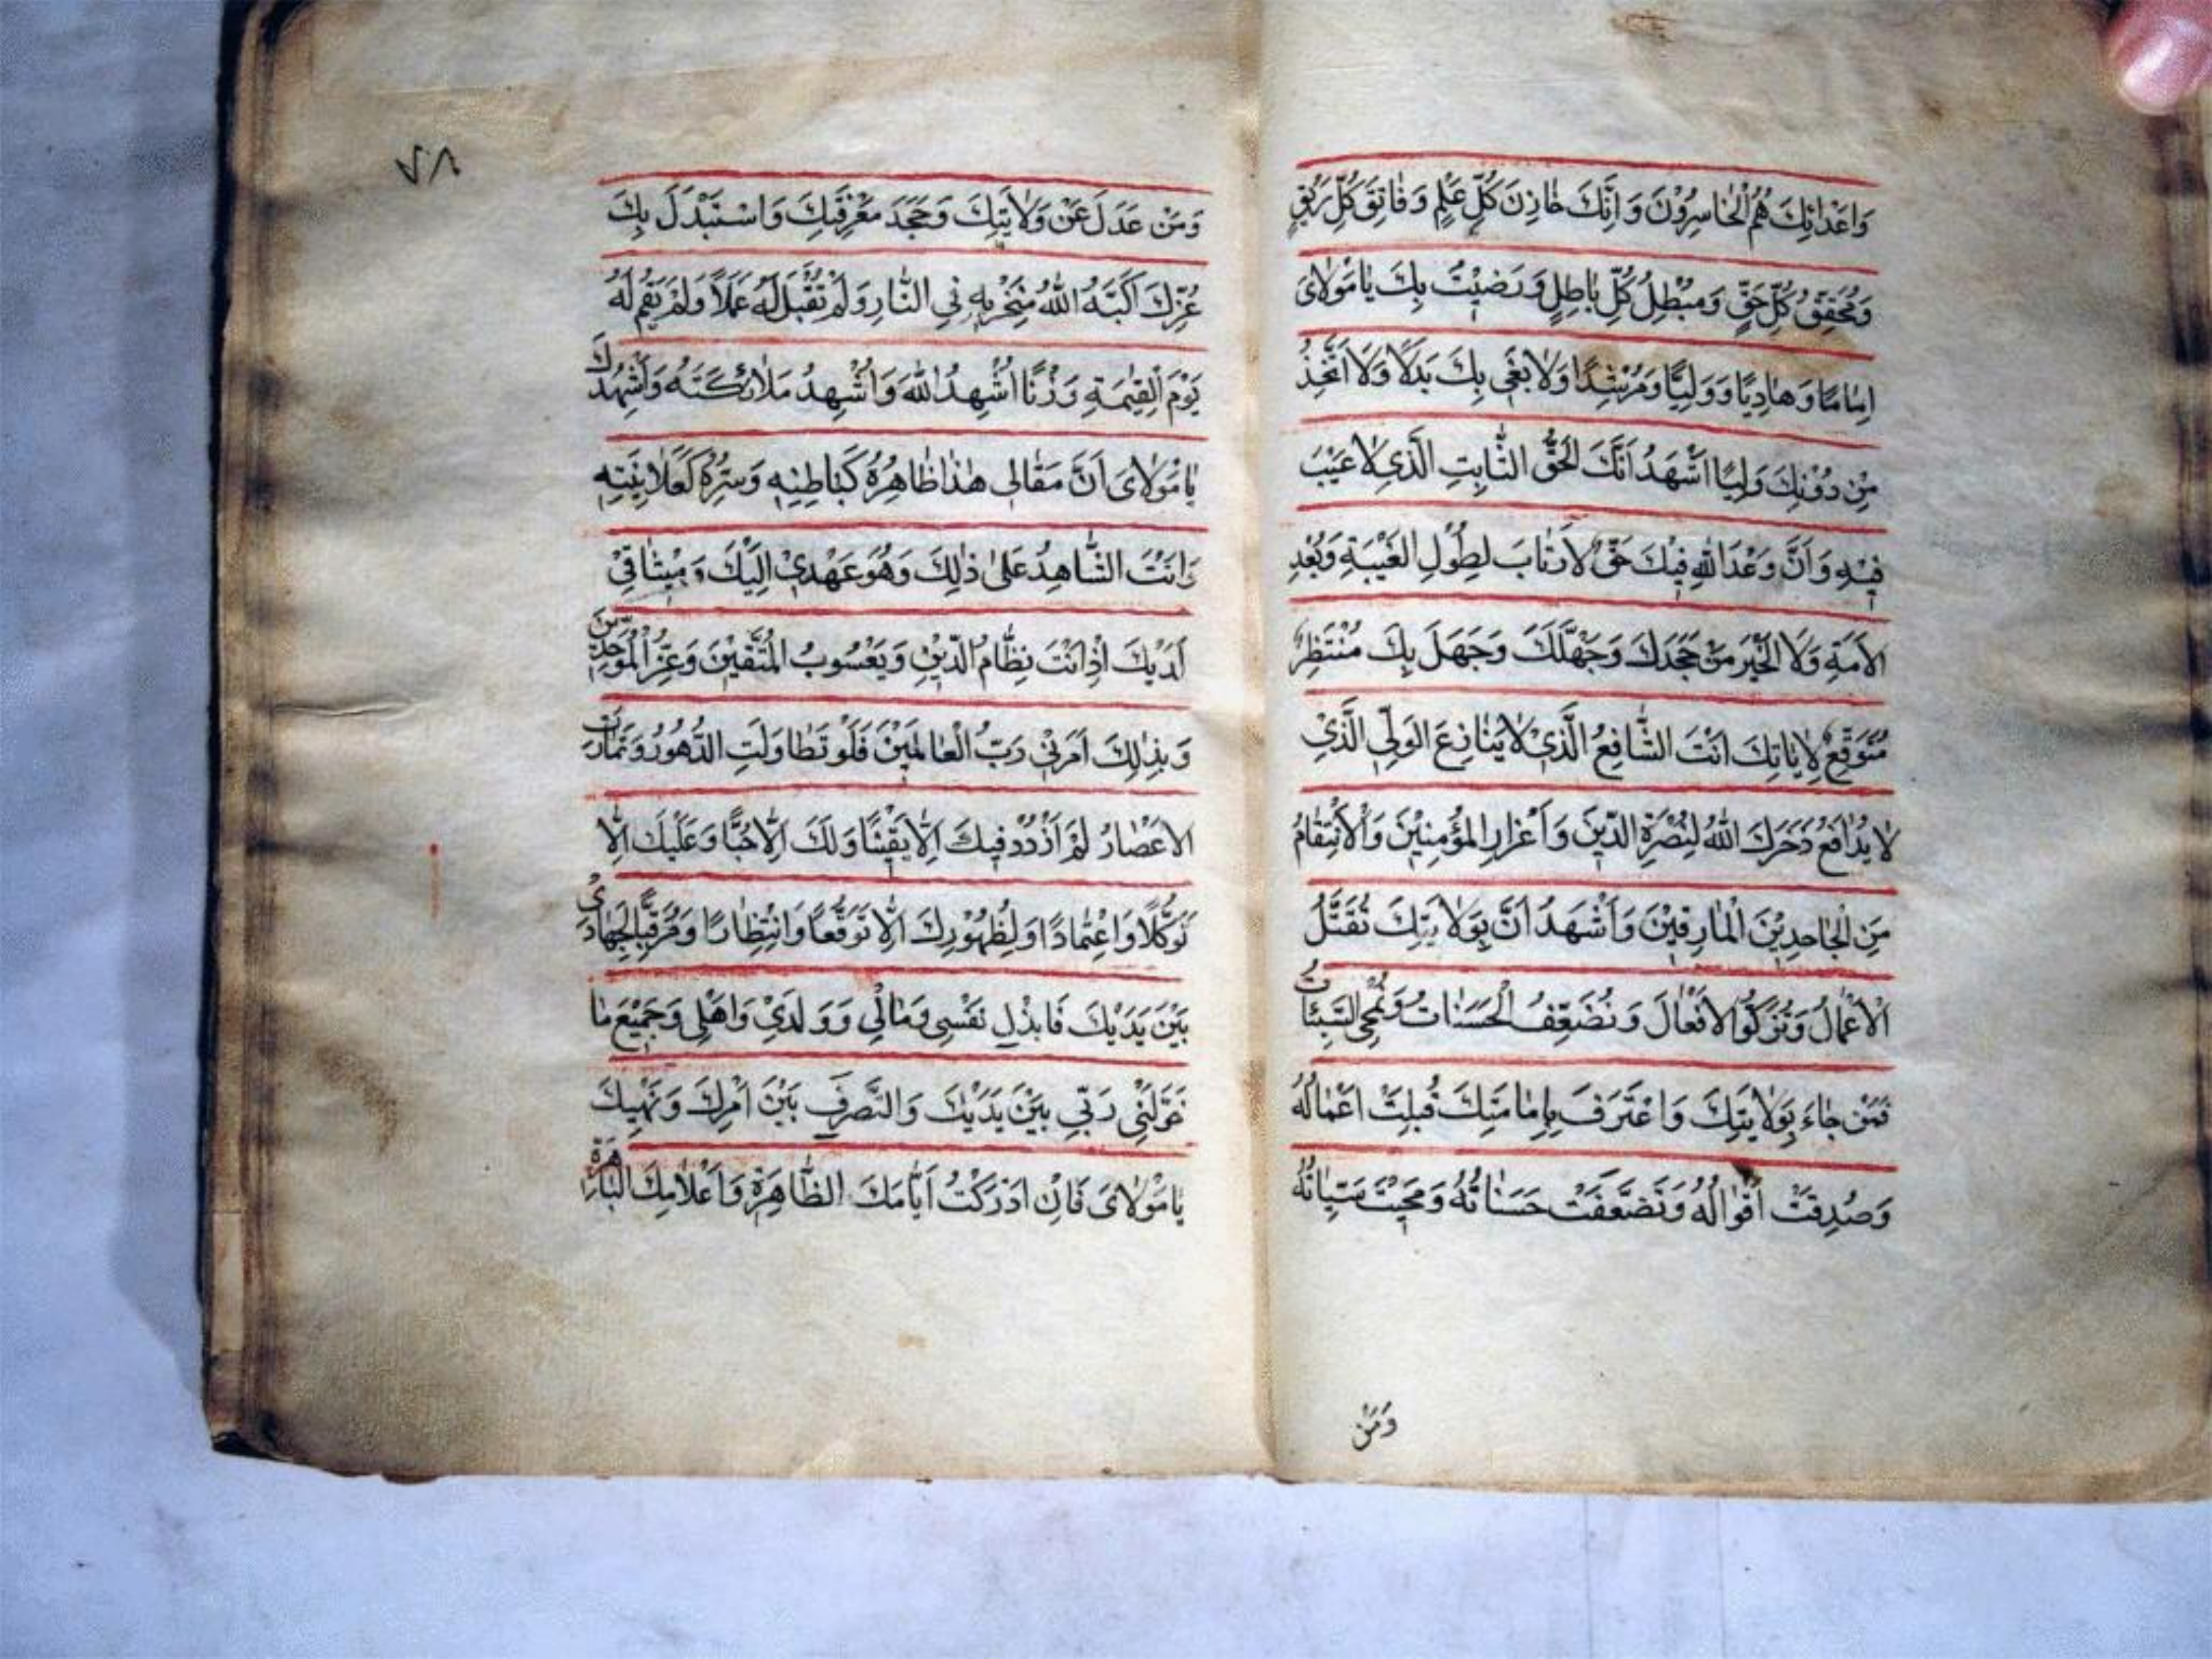 وَاَعْدَائِكَ هُمُ الْخَاسِرُوْنَ وَاِنَّكَ خَازِنَ كُلِّ عِلْمٍ وَفَاتِقَ كُلِّ رَتْقٍ
وَمُحَقِّقُ كُلِّ حَقٍّ وَمُبْطِلُ كُلِّ بَاطِلٍ وَرَضِيْتُ بِكَ يَا مَوْلَاىَ
اِمَامًا وَهَادِيًا وَوَلِيًّا وَمُرْشِدًا وَلَا بَغٰى بِكَ بَدَلًا وَلَا اَتَّخِذُ
مِنْ دُوْنِكَ وَلِيًّا اَشْهَدُ اَنَّكَ الْحَقُّ الثَّابِتِ الَّذِى لَا عَيْبَ
فِيْهِ وَاَنَّ وَعْدَ اللهِ فِيْكَ حَقٌّ لَا رَتَابَ لِطُوْلِ الْغَيْبَةِ وَبُعْدِ
الْاَمَةِ وَلَا الْخَيْرَ مَنْ جَحَدَكَ وَجَهَّلَكَ وَجَهَلَ بِكَ مُنْتَظِرٌ
مُتَوَقِّعٌ لِاٰيَاتِكَ اَنْتَ الشَّافِعُ الَّذِىْ لَا يَنَازِعَ الْوَلِّى الَّذِىْ
لَا يُدَافَعُ دَخَرَكَ اللهُ لِنُصْرَةِ الدِّيْنَ وَاَعْزَازِ الْمُؤْمِنِيْنَ وَالْاِنْتِقَامُ
مِنَ الْجَاحِدِيْنَ الْمَارِقِيْنَ وَاَشْهَدُ اَنَّ بِوَلَايَتِكَ تُقْتَّلُ
الْاَعْمَالُ وَتُزَكُّوْا الْاَفْعَالَ وَتُضَعِّفُ الْحَسَنَاتُ وَتُمْحَى السَّيِّئَاتُ
فَمَنْ جَاءَ بِوَلَايَتِكَ وَاعْتَرَفَ بِاِمَامَتِكَ قُبِلَتْ اَعْمَالُهُ
وَصُدِقَتْ اَقْوَالُهُ وَتَضَعَّفَتْ حَسَنَاتُهُ وَمُحِيَتْ سَيِّاٰتُهُ
وَمَنْ
٧٨
وَمَنْ عَدَلَ عَنْ وَلَايَتِكَ وَجَحَدَ مَعْرِفَتِكَ وَاسْتَبْدَلَ بِكَ
غَيْرَكَ اَكَبَّهُ اللهُ مَنْخَرِيْهِ فِى النَّارِ وَلَمْ تُقْبَلْ لَهُ عَمَلًا وَلَمْ يَقُمْ لَهُ
يَوْمَ الْقِيٰمَةِ وَزْنًا اُشْهِدُ اللهَ وَاُشْهِدُ مَلَائِكَتَهُ وَاُشْهِدُكَ
يَا مَوْلَاىَ اَنَّ مَقَالِى هٰذَا ظَاهِرُهُ كَبَاطِنِهِ وَسِرُّهُ كَعَلَانِيَتِهِ
وَاَنْتَ الشَّاهِدُ عَلٰى ذٰلِكَ وَهُوَ عَهْدِىْ اِلَيْكَ وَمِيْثَاقِىْ
لَدَيْكَ اِذْ اَنْتَ نِظَّامُ الدِّيْنِ وَيَعْسُوبُ الْمُتَّقِيْنَ وَعِزُّ الْمُوَحِّدِيْنَ
وَبِذٰلِكَ اَمَرَنِىْ رَبُّ الْعَالَمِيْنَ فَلَوْ تَطَاوَلَتِ الدُّهُوْرُ وَتَمَادَتِ
الْاَعْصَارُ لَمْ اَزْدَدْ فِيْكَ اِلَّا يَقِيْنًا وَلَكَ اِلَّا حُبًّا وَعَلَيْكَ اِلَّا
تَوَكُّلًا وَاعْتِمَادًا وَلِظُهُوْرِكَ اِلَّا تَوَقُّعًا وَانْتِظَارًا وَمُرَقَّبًا لِجِهَادِىْ
بَيْنَ يَدَيْكَ فَابْذُلِ نَفْسِى وَمَالِى وَوَلَدِىْ وَاَهْلِى وَجَمِيْعَ مَا
خَوَّلَنِىْ رَبِّى بَيْنَ يَدَيْكَ وَالتَّصَرُفِ بَيْنَ اَمْرِكَ وَنَهْيِكَ
يَا مَوْلَاىَ فَاِنْ اَدْرَكْتُ اَيَّامَكَ الظَّاهِرَةَ وَاَعْلَامِكَ الْبَاهِرَةَ